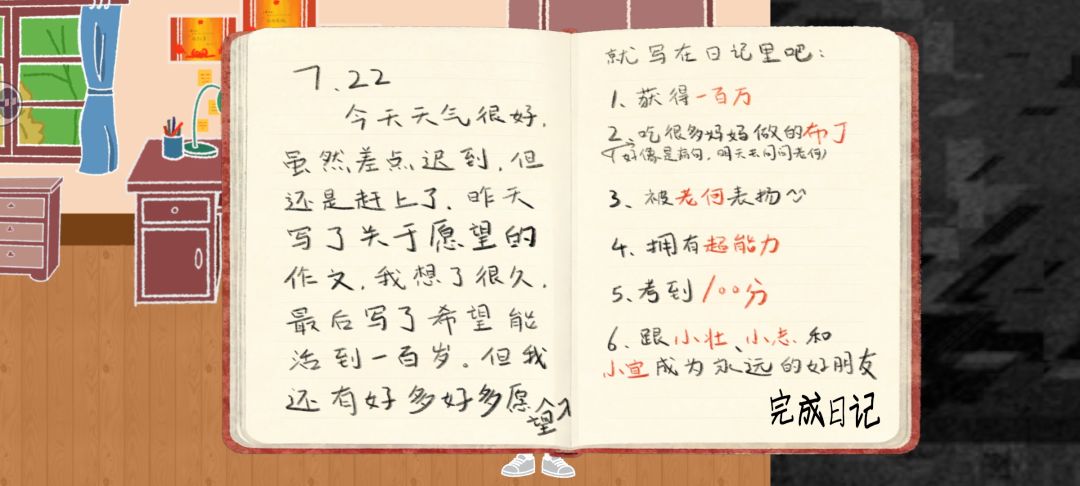 7.22
今天天气很好,
虽然差点迟到,但
还是赶上了,昨天
写了关于愿望的
作文,我想了很久,
最后写了希望能
活到一百岁。但我
还有好多好多愿望
就写在日记里吧:
1、获得一百万
2、吃很多妈妈做的布丁
(好像是病句,明天去问问老何)
3、被老何表扬
4、拥有超能力
5、考到100分
6、跟小壮、小志和
小宣成为永远的好朋友
完成日记